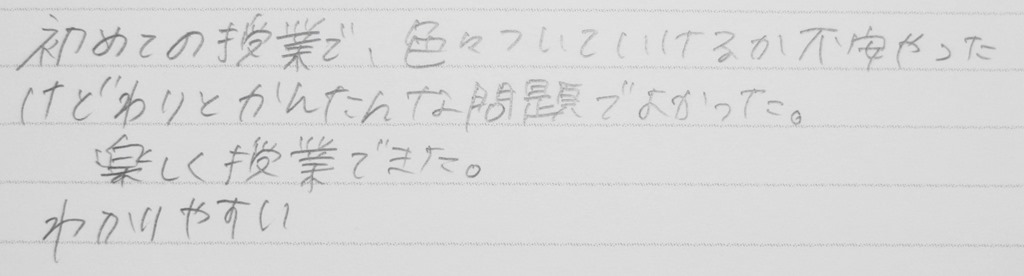 初めての授業で、色々ついていけるか不安やった
けどわりとかんたんな問題でよかった。
楽しく授業できた。
わかりやすい